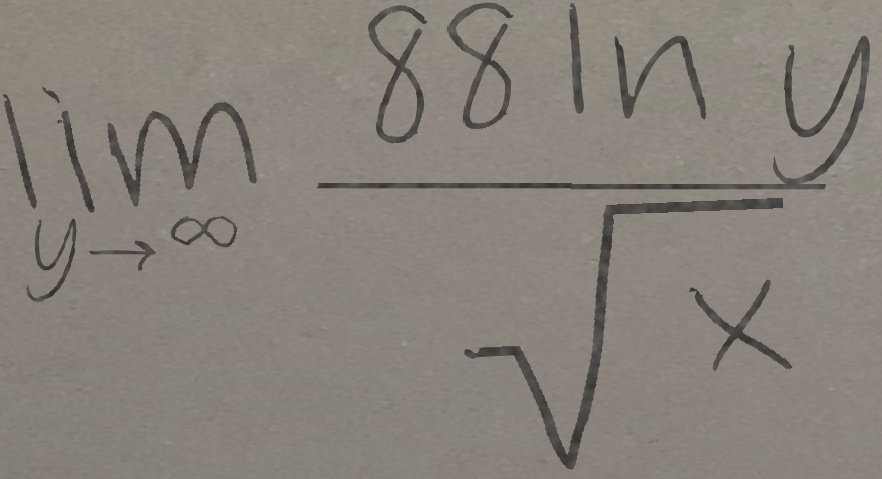 \lim_{y \to \infty} \frac{88 \ln y}{\sqrt{x}}